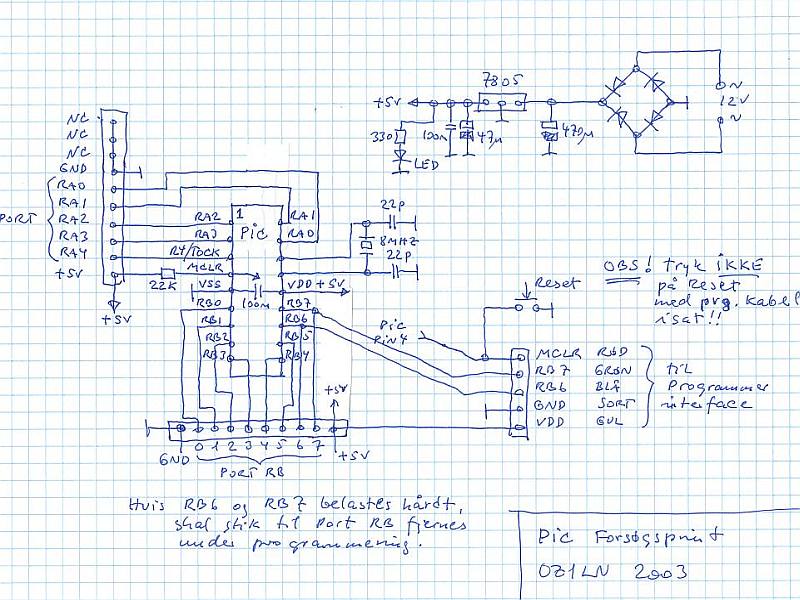 7805
+5V
~
12V
~
330
100n
47µ
470µ
LED
NC
NC
NC
GND
RA0
RA1
PORT
RA2
RA3
RA4
+5V
+5V
22K
1
Pic
RA2
RA3
R4/TOCK
MCLR
VSS
RB0
RB1
RB2
RB3
RA1
RA0
VDD +5V
RB7
RB6
RB5
RB4
100n
22p
8MHZ
22p
OBS! Tryk IKKE
på Reset
med prg. kabel
isat!!
Reset
Pic
Pin 4
MCLR RØD
RB7 GRØN
RB6 BLÅ
GND SORT
VDD GUL
til
Programmer
interface
+5V
GND
0 1 2 3 4 5 6 7
+5V
PORT RB
Hvis RB6 og RB7 belastes hårdt,
skal stik til Port RB fjernes
under programmering.
Pic Forsøgsprint
OZ1LN 2003